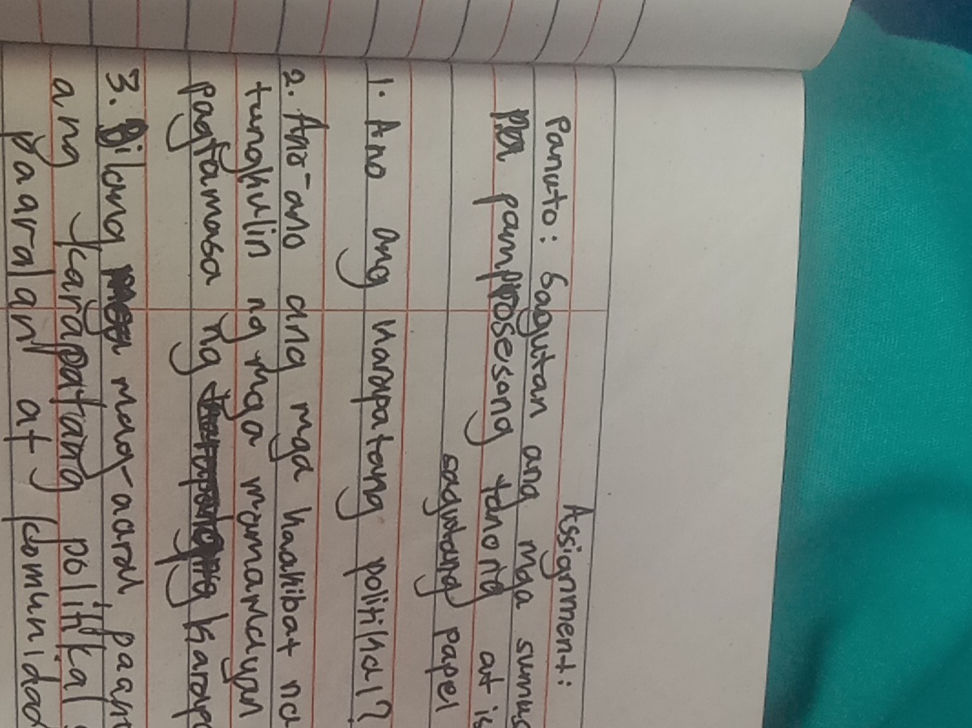 Assignment:
Panuto: Sagutan ang mga sumus
pampposesong tanong at is
sagutang papel
1. Ano ang karapatang politikal?
2. Ano-ano ang mga kaakibat na
tungkulin ng mga mamamayan
pagtamasa ng karapa
3. Bilang mag-aaral, paano
ang karapatang politikal
paaralan at komunidad